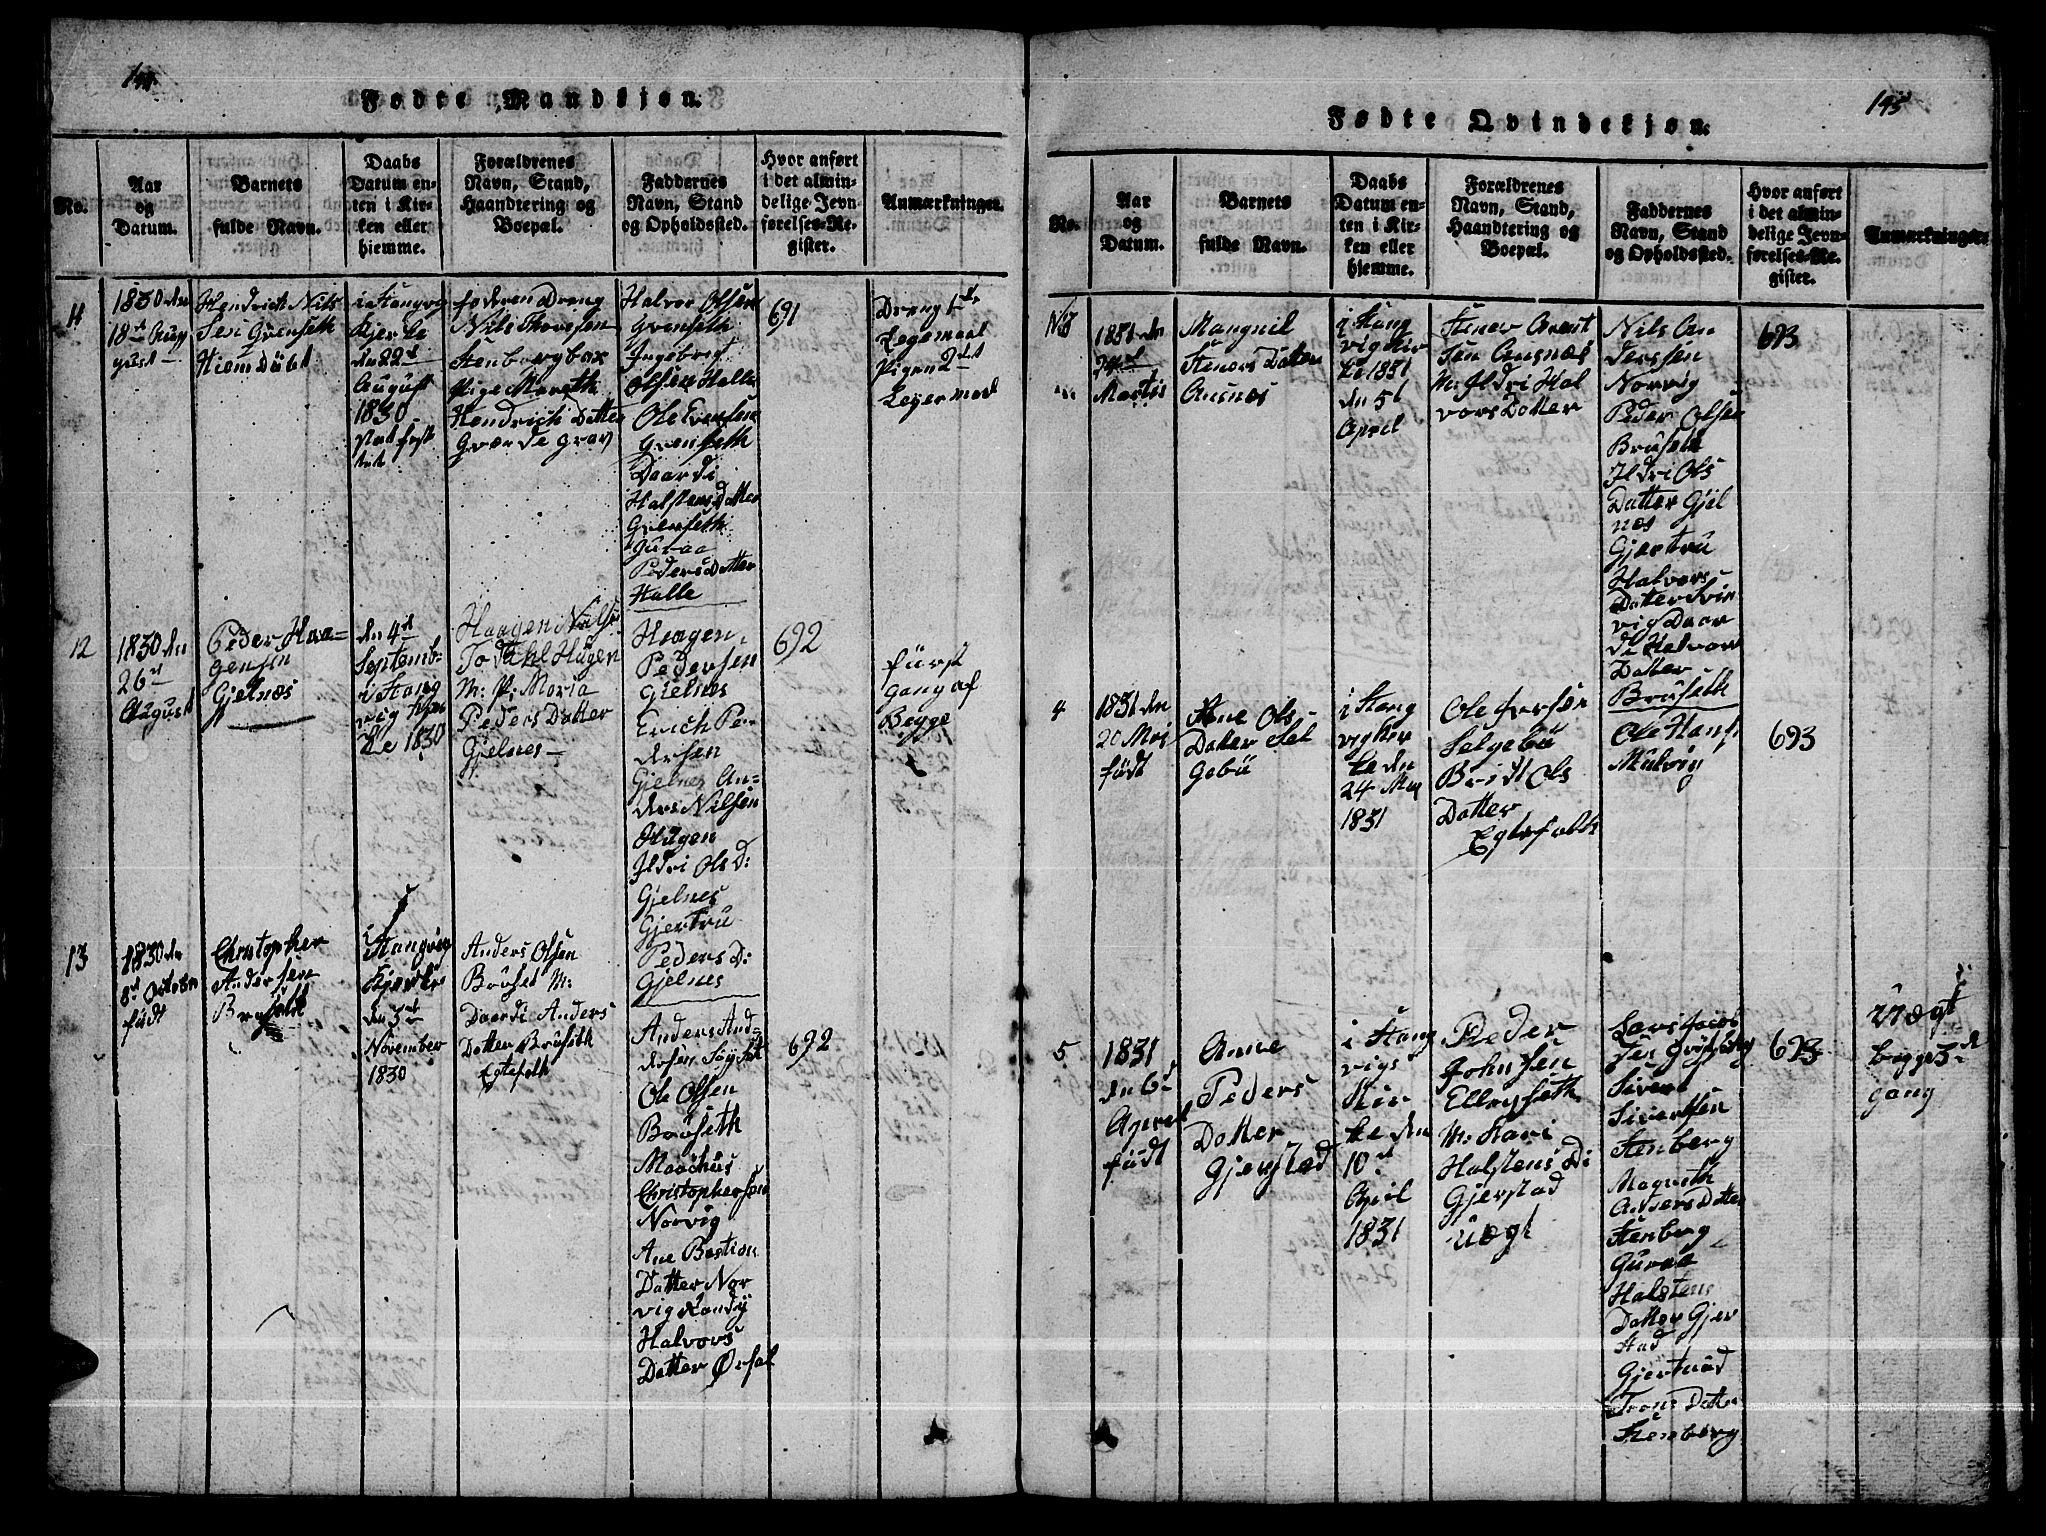 Fødte Mandkjøn.
No.
Aar
og
Datum.
Barnets
fulde Navn.
Daabs
Datum en-
ten i Kir-
ken eller
hjemme.
Forældrenes
Navn, Stand,
Haandtering og
Boepæl.
Faddernes
Navn, Stand
og Opholdssted.
Hvor anført
i det almin-
delige Jevn-
førelses-Re-
gister.
Anmærkninger.
11
1830 den
18de Aug
gust
Hendrich Nils
Sen Gvenseth
Hiem Döbt
i Stangvig
Kjerke
den 22de
August
1830
Stadfæst
foderen Dreng
Nils Thoresen
Pige Mareth
Hendrich Datter
Halvor Olsen
Gvenseth
Ingebrigt
Olsen Halle
Ole Evensen
Gvenseth
Daardi
Halstens Datter
Gvenseth
Guraa
Peders Datter
Halle
691
Dreng 1ste
Legemaal
Pigen 2det
Leyermaal
12
1830 den
26de
August
Peder Haa-
gensen
Gjelnæs
den 4de
Septemb
i Stang
vig Kjer
ke 1830
Haagen Nilsen
M: P: Maria
Peders Datter
Gjelnes
Haagen
Pedersen
Gielnes
Erich Pe-
dersen
Gjelnes An-
ders Nilsen
Hagen
Ildri Ols D:
Gjelnes
Gjertru
Peders D:
Gjelnes
692
fürst
gang af
Begge
13
1830 den
8de October
födt
Christopher
Andersen
Bruseth
i Stangvig
Kjerke
den 3de
November
1830
Anders Olsen
Bruset M:
Daardi Anders
Datter Bruseth
Egtefolk
Anders And-
ersen
Ole Olsen
Bruseth
Christophersen
Norvig
Ane Bastian
Datter Nor
vig Randi
Halvors
Datter
692
Fødte Qvindekjøn.
195
No.
Aar
og
Datum.
Barnets
fulde Navn.
Daabs
Datum en-
ten i Kir-
ken eller
hjemme.
Forældrenes
Navn, Stand,
Haandtering og
Boepæl.
Faddernes
Navn, Stand
og Opholdssted.
Hvor anført
i det almin-
delige Jevn-
førelses-Re-
gister.
Anmærkninger.
1831 den
Martii
Mangnil
Stenors Datter
Aasnæs
i Stang
vig Kir
ke 1831
den 5t
April
Stener Arent
Sen Aasnæs
M: Ildri Hal
vors Datter
Nils An
dersen
Norvig
Peder Olsen
Bruseth
Ildri Ols
Datter Gjel
næs
Gjertru
Halvors
Datter Svin
vig Daar
di Halvor
Datter
Bruseth
693
4
1831 den
20 Mai
födt
Ane Ols
Datter Sel
gebü
i Stang
vig Ker
ke den
24 Mai
1831
Ole Iversen
Selgebü
Bridt Ols
Datter
Egtefolk
Ole Hans
693
5
1831
den 6te
April
födt
Anne
Peders
Datter
Gjerstad
i Stang
vigs
Kir
ke den
10de
April
1831
Peder
Johnsen
M: Kari
Halstens D:
Gjerstad
Uægt
Sivert
Sivertsen
Stenberg
Magneth
Anders Datter
Stenberg
Guraa
Halstens
Datter Gjer
stad
Gjertrud
Trons Datter
Stenberg
693
Uægt
begge 3de
gang